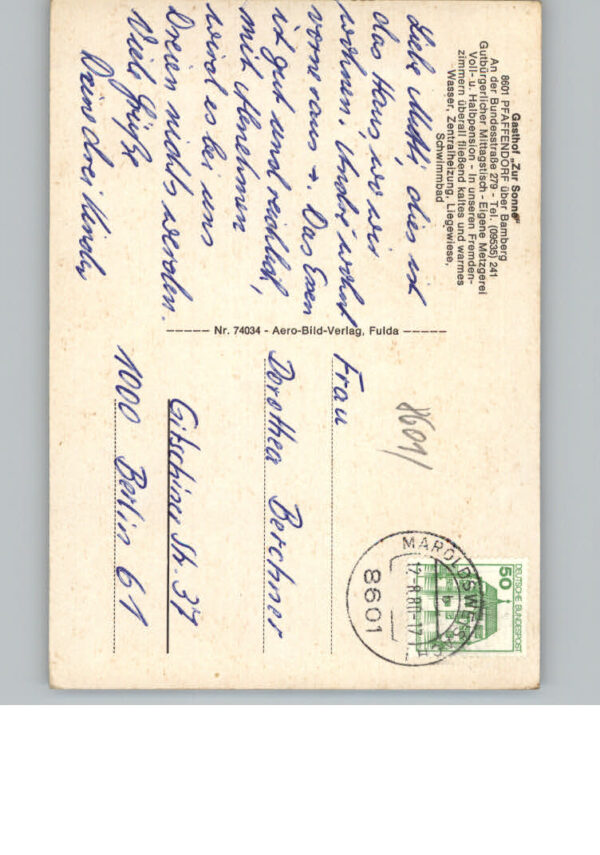 Gasthof „Zur Sonne"
8601 PFAFFENDORF über Bamberg
An der Bundesstraße 279 - Tel. (09535) 241
Gutbürgerlicher Mittagstisch - Eigene Metzgerei
Voll- u. Halbpension - In unseren Fremden-
zimmern überall fließend kaltes und warmes
Wasser, Zentralheizung, Liegewiese,
Schwimmbad
Liebe Mutti, dies ist
das Haus, wo wir
wohnen. André wohnt
vorne raus +. Das Essen
ist gut und reichlich,
mit Abnehmen
wird es bei uns
Dreien nichts werden.
Viele Grüße
Deine drei Kinder
Nr. 74034 - Aero-Bild-Verlag, Fulda
8601
DEUTSCHE BUNDESPOST
50
MAROLDSWEISACH
12.-8.80-17
8601
Frau
Dorothea Berchner
Gitschiner Str. 37
1000 Berlin 61